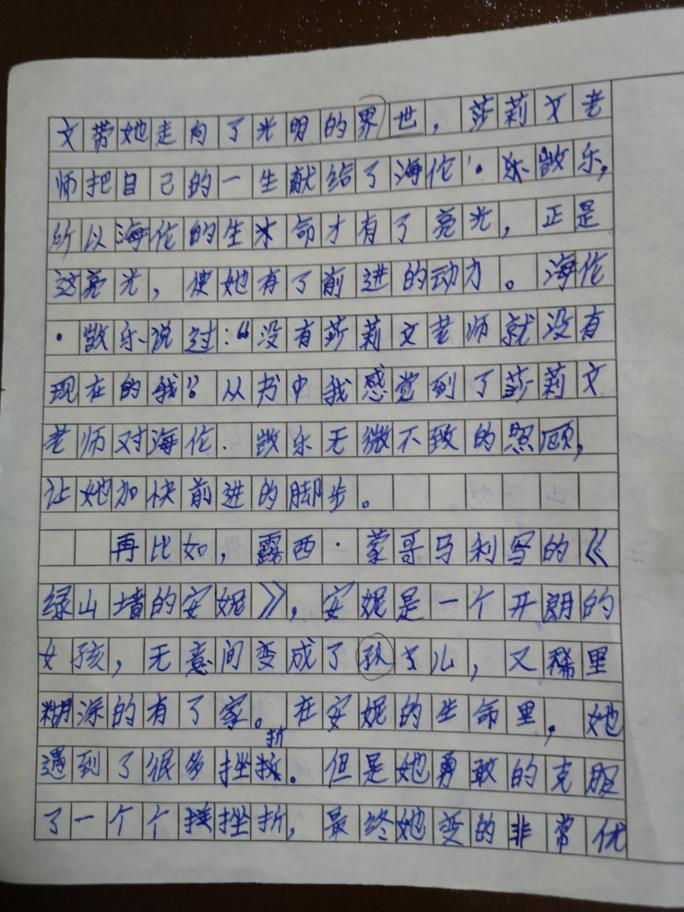 文带她走向了光明的界世，莎莉文老
师把自己的一生献给了海伦·乐散乐，
所以海伦的生木命才有了亮光，正是
这亮光，使她有了前进的动力。海伦
·散乐说过：“没有莎莉文老师就没有
现在的我”。从书中我感觉到了莎莉文
老师对海伦·散乐无微不致的照顾，
让她加快前进的脚步。
再比如，露西·蒙哥马利写的《
绿山墙的安妮》，安妮是一个开朗的
女孩，无意间变成了孤儿，又稀里
糊涂的有了家。在安妮的生命里，她
遇到了很多挫折。但是她勇敢的克服
了一个个挫折，最终她变的非常优